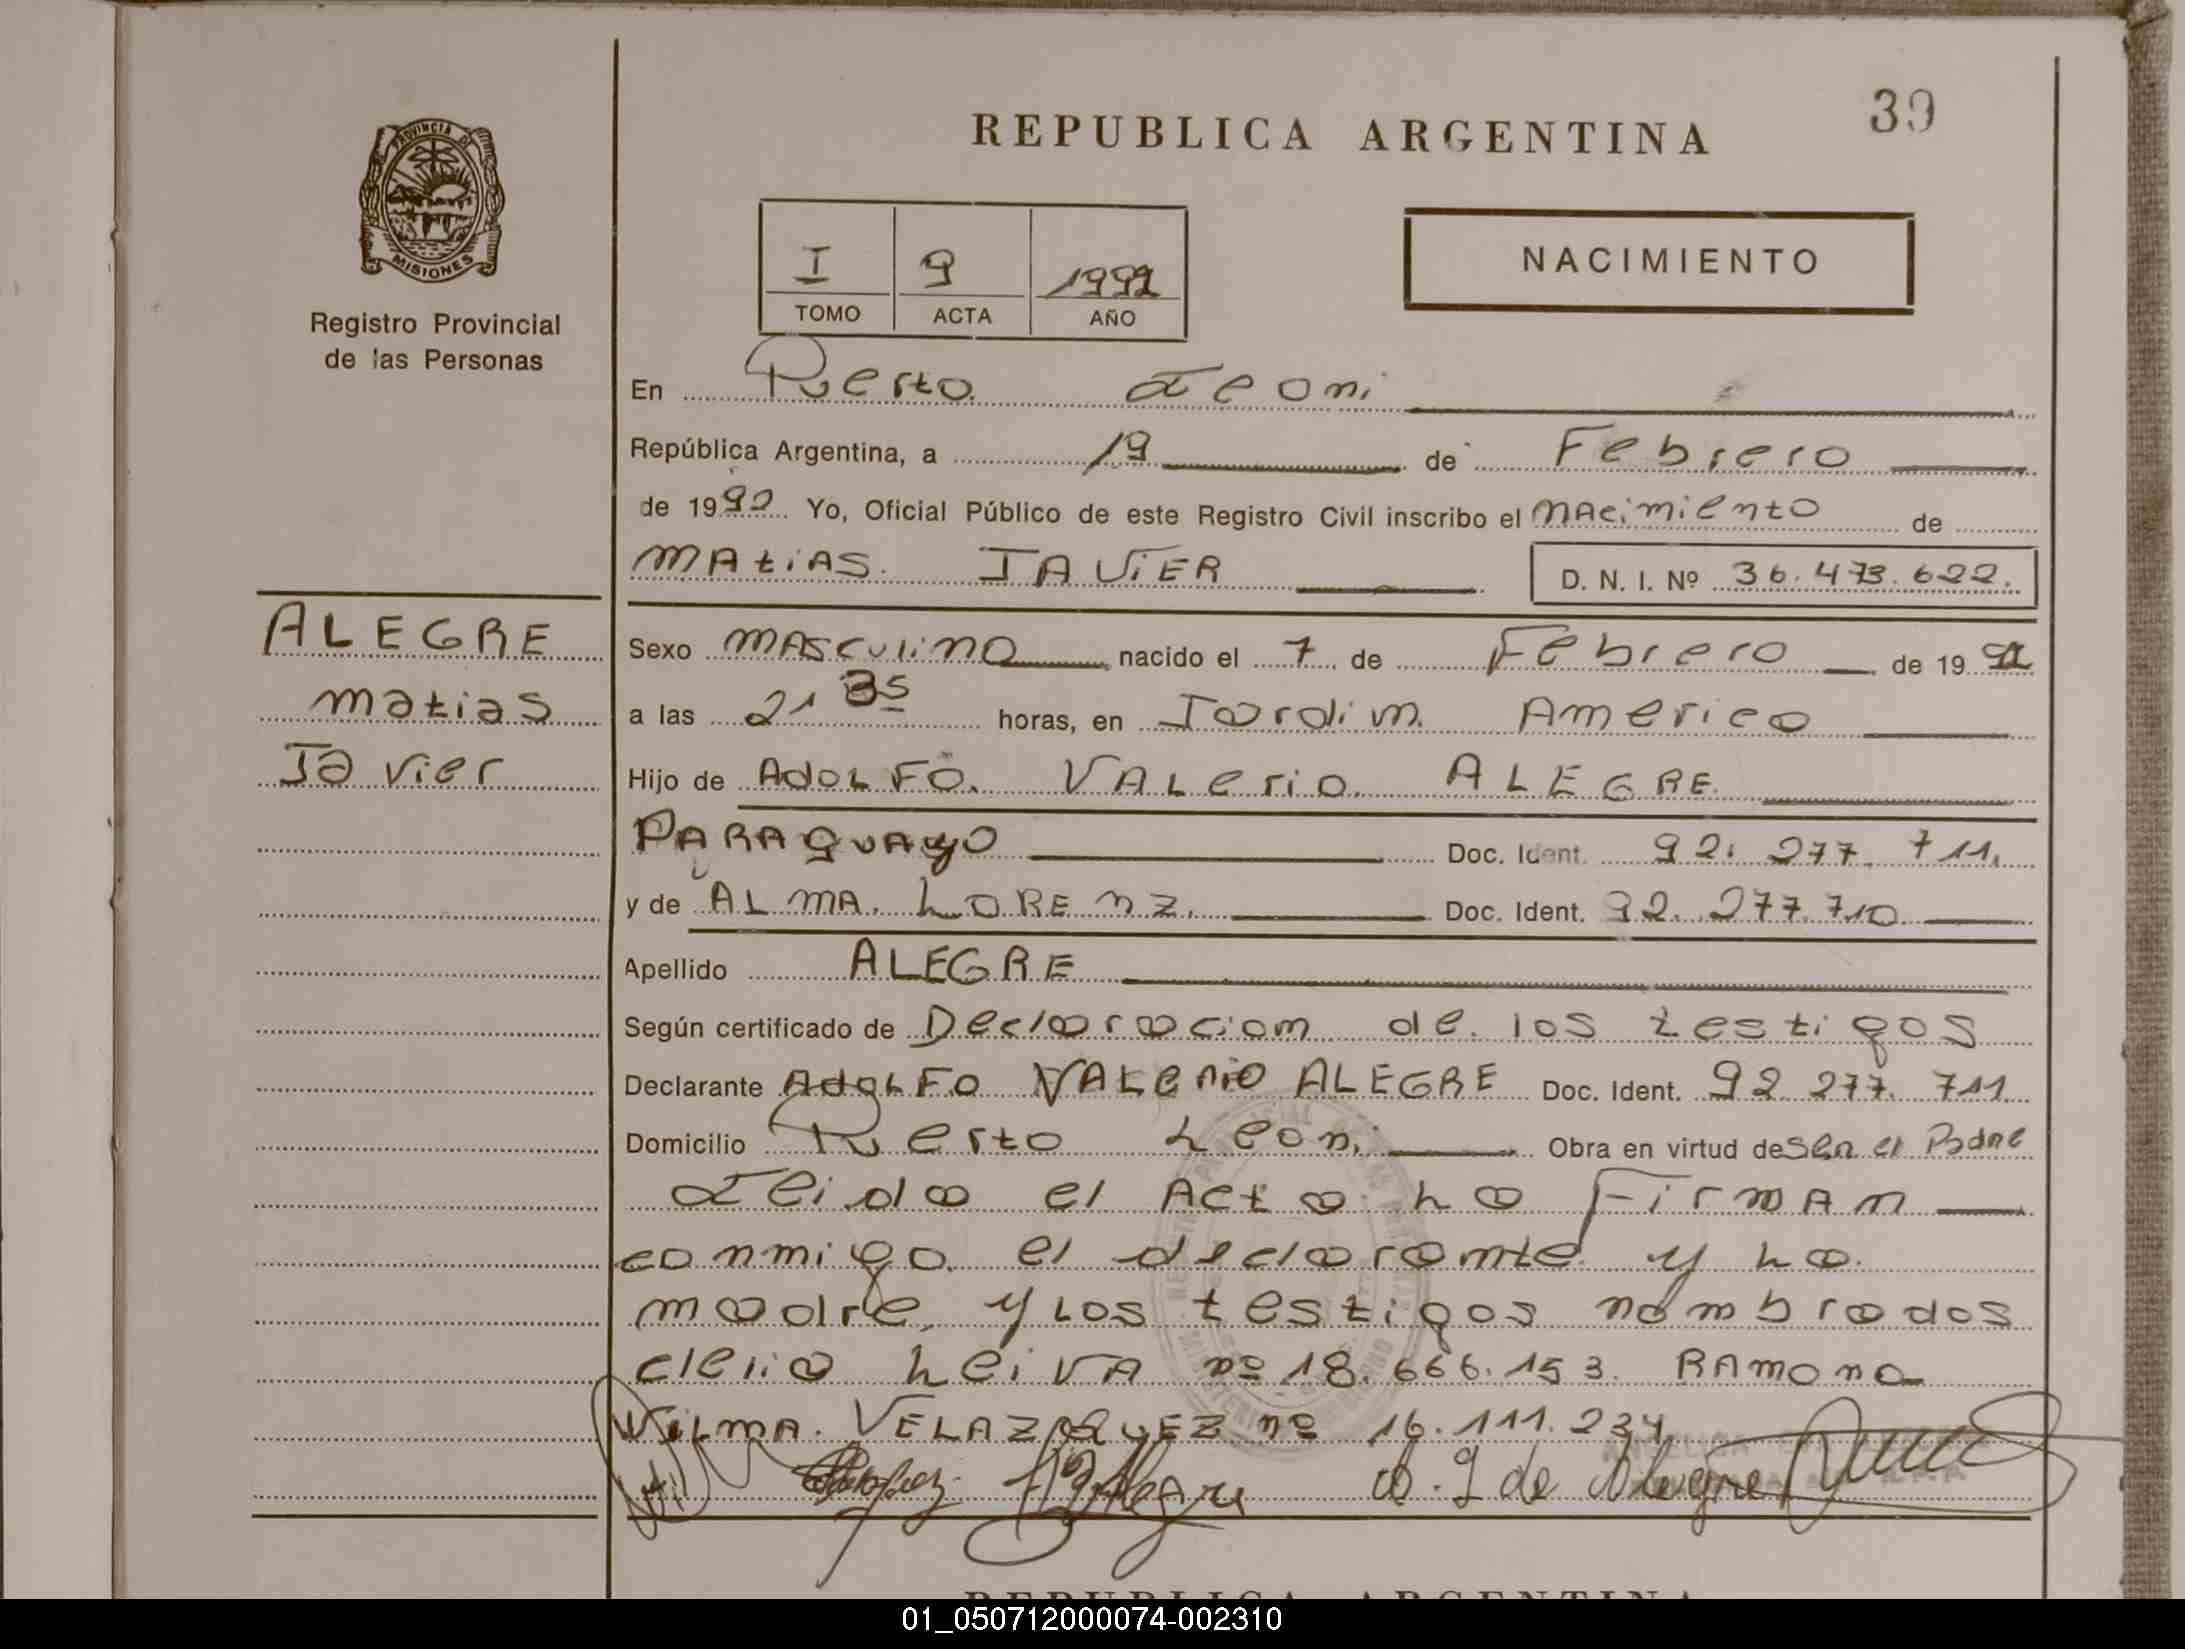 REPUBLICA ARGENTINA
39
PROVINCIA DE
MISIONES
Registro Provincial
de las Personas
I 9 1992
TOMO ACTA AÑO
NACIMIENTO
En Puerto Leoni
República Argentina, a 19 de Febrero
de 1992 Yo, Oficial Público de este Registro Civil inscribo el nacimiento de
MAtiAS JAViER D. N. I. Nº 36.473.622.
ALEGRE
matias
Javier
Sexo MASculino nacido el 7 de Febrero de 19 92
a las 21 35 horas, en Jardin America
Hijo de AdoLFO. VALerio. ALEGRE
PARAguAyo Doc. Ident. 92.277.711.
y de ALMA. LORENZ. Doc. Ident. 92.277.710
Apellido ALEGRE
Según certificado de Declaracion de los testigos
Declarante AdoLFo VALerio ALEGRE Doc. Ident. 92.277.711
Domicilio Puerto Leoni Obra en virtud de Ser el Padre
Leida el Acta La FirmAn
conmigo el declarante y La
madre, y Los testigos nombrados
clelia LeiVA nº 18.666.153. RAmona
ViLMA. VELAZQUEZ nº 16.111.234
L. de Alegre
REPUBLICA ARGENTINA
01_050712000074-002310